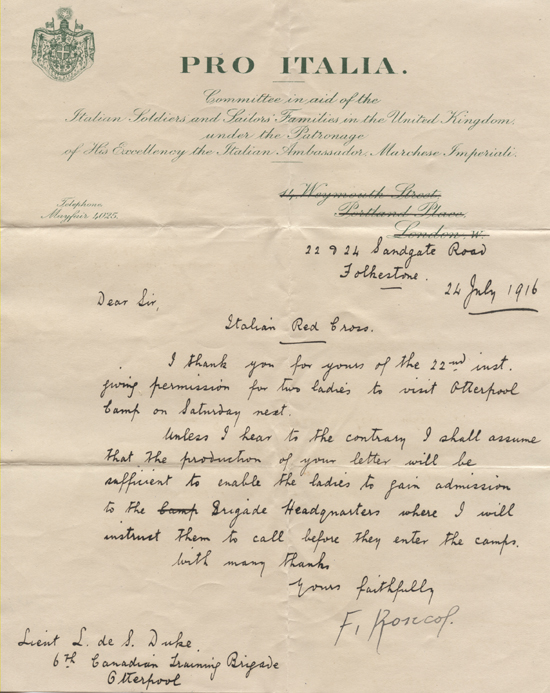 PRO ITALIA.
Committee in aid of the
Italian Soldiers and Sailors' Families in the United Kingdom,
under the Patronage
of His Excellency the Italian Ambassador, Marchese Imperiali.
Telephone
Mayfair 4025.
Weymouth Street,
Portland Place,
London, W.
22 & 24 Sandgate Road
Folkestone.
24 July 1916
Dear Sir,
Italian Red Cross.
I thank you for yours of the 22nd inst.
giving permission for two ladies to visit Otterpool
Camp on Saturday next.
Unless I hear to the contrary I shall assume
that the production of your letter will be
sufficient to enable the ladies to gain admission
to the Camp Brigade Headquarters where I will
instruct them to call before they enter the camps.
With many thanks
Yours faithfully
F. Roscoe.
Lieut L. de S. Duke.
6th Canadian Training Brigade
Otterpool